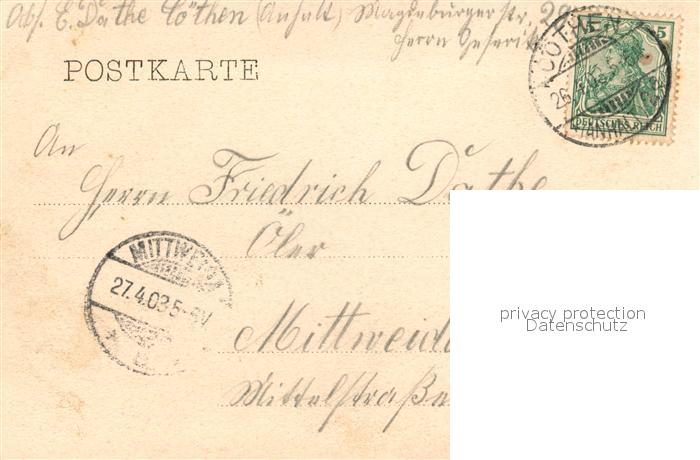 Abs. E. Däthe Cöthen (Anhalt) Magdeburgerstr. 29
Herrn
POSTKARTE
CÖTHEN
26
(ANHALT)
5
DEUTSCHES REICH
An
Herrn Friedrich Däthe
Öler
Mittweida
Mittelstraße
MITTWEIDA
27.4.03 5-6N
privacy protection
Datenschutz